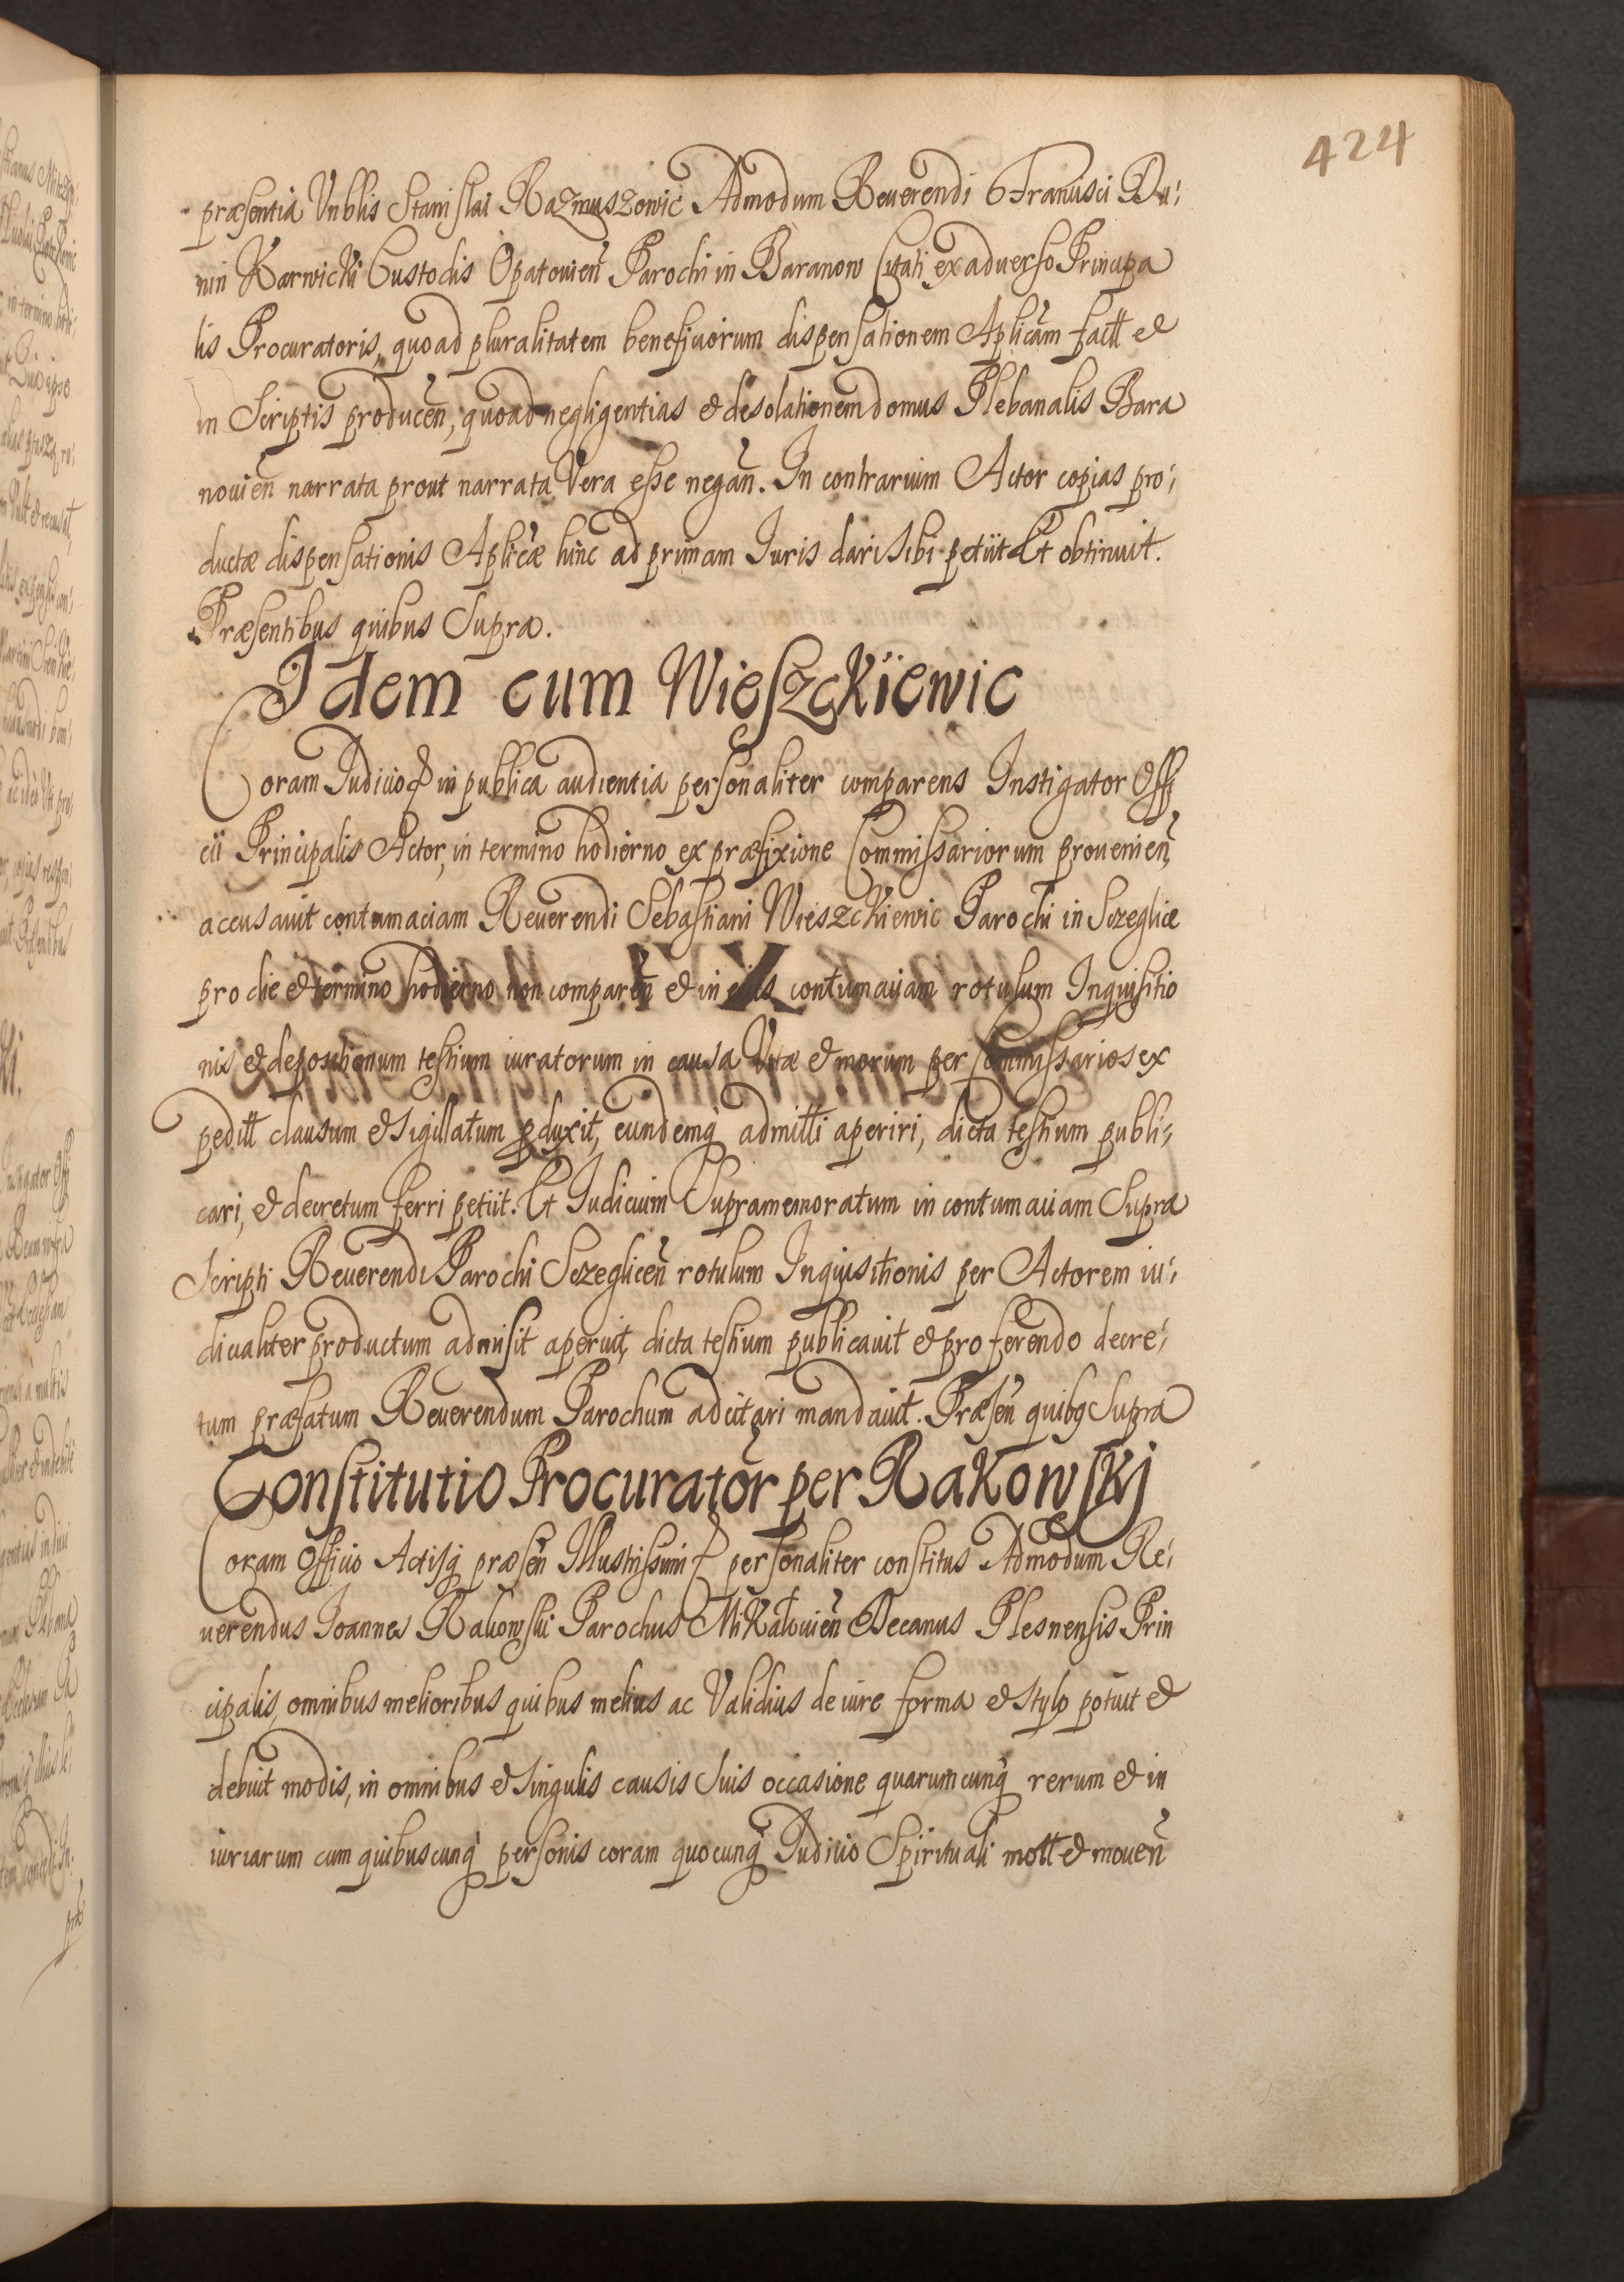 424
præsentia Vnblis Stanislai Razmuszowic Admodum Reuerendi Francisci Du:
nin Karwicki Custodis Opatouien̄ Parochi in Baranow Citati ex aduerso Principa
lis Procuratoris, quoad pluralitatem beneficiorum dispensationem Aplicam factt et
in Scriptis producen̄, quoad negligentias et desolationem domus Plebanalis Bara
nouien̄ narrata prout narrata Vera esse negan̄. In contrarium Actor copias pro:
ductæ dispensationis Aplicæ hinc ad primam Iuris dari sibi petiit Et obtinuit.
Præsentibus quibus Supra.
Idem cum Wieszckiewic
Coram Iudicio in publica audientia personaliter comparens Instigator Offi
cii Principalis Actor, in termino hodierno ex præfixione Commissariorum prouenien̄,
accusauit contumaciam Reuerendi Sebastiani Wieszckiewic Parochi in Szeglice
pro die et termino hodierno non comparen̄ et in eius contumaciam rotulum Inquisitio
nis et depositionum testium iuratorum in causa Vitæ et morum per Commissarios ex
peditt clausum et sigillatum pduxit, eundemq admitti aperiri, dicta testium publi:
cari, et decretum ferri petiit. Et Iudicium Supramemoratum in contumaciam Supra
Scripti Reuerendi Parochi Sczeglicen̄ rotulum Inquisitionis per Actorem iu:
dicialiter productum admisit aperuit, dicta testium publicauit et pro ferendo decre:
tum præfatum Reuerendum Parochum adcitari mandauit. Præsen̄ quibq Supra
Constitutio Procurator per Rakowskj
Coram Officio Actisq præsen̄ Illustrissimi personaliter constitus Admodum Re:
uerendus Ioannes Rakowski Parochus Mikałouien̄ Decanus Plesnensis Prin
cipalis, omnibus melioribus quibus melius ac Validius de iure forma et stylo potuit et
debuit modis, in omnibus et singulis causis suis occasione quarumcunq rerum et in
iuriarum cum quibuscunq personis coram quocunq Iudicio Spirituali mott et mouen̄